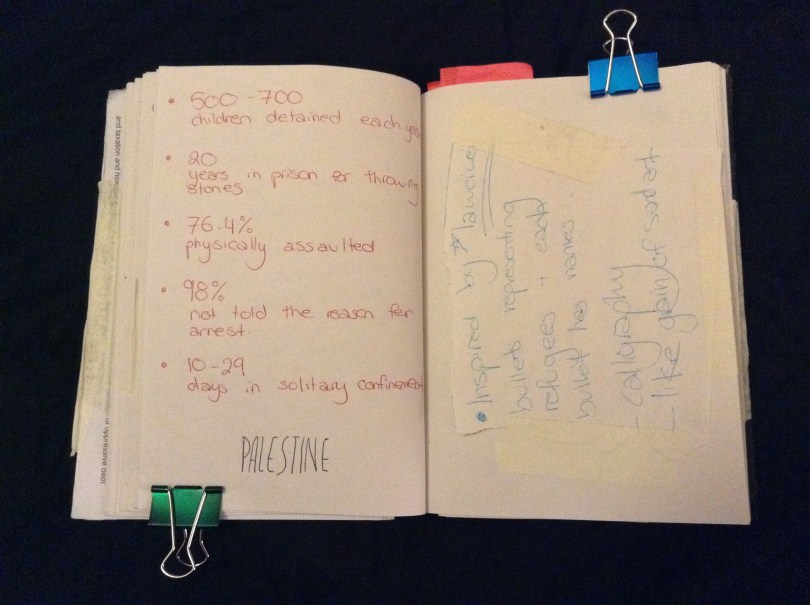 • 500-700
children detained each ye
• 20
years in prison for throwing
stones
• 76.4%
physically assaulted
• 98%
not told the reason for
arrest.
• 10-29
days in solitary confinement
PALESTINE
• Inspired by
bullets representing
refugees + each
bullet has names
- calligraphy
- like grain of
and taxation and